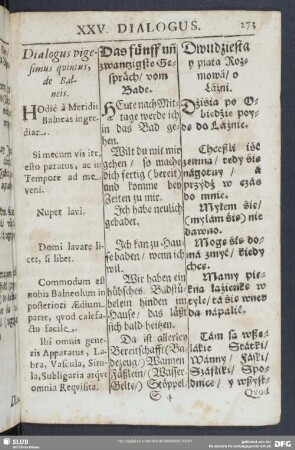 XXV. DIALOGUS. 273
Dialogus vige-
simus quintus,
de Bal-
neis.
HOdiè à Meridie
Balneas ingre-
diar.
Si mecum vis ire,
esto paratus, ac in
Tempore ad me
veni.
Nuper lavi.
Domi lavare li-
cet, si libet.
Commodum est
nobis Balneolum in
posteriori Ædium
parte, quod calefa-
ctu facile.
Ibi omnis gene-
ris Apparatus, La-
bra, Vascula, Situ-
la, Subligaria atqve
omnia Reqvisita.
Das fünff uñ
zwanzigste Ge-
spräch/ vom
Bade.
HEute nach Mit-
tage werde ich
in das Bad ge-
hen.
Wilt du mit mir
gehen/ so mache
dich fertig (bereit)
und komme bey
Zeiten zu mir.
Ich habe neulich
gebadet.
Ich kan zu Hau-
se baden/ wenn ich
wil.
Wir haben ein
hübsches Badstü-
belein hinden im
Hause/ das läst
sich bald heitzen.
Da ist allerley
Bereitschafft (Ba-
dezeug) Wannen
Fäßlein/ Wasser-
Gelte/ Stöppel
Dwudziesta
y piata Roz-
mowá/ o
Láźni.
Dźisia po O-
biedzie poy-
de do Láźnie.
Chceszli iść
zemna/ redy się
nágotuy/ á
przydź w czás
do mnie.
Myłem się/
(mylám się) nie
dawno.
Moge się do-
má zmyć/ kiedy
chce.
Mamy pie-
kna łáźienke w
tyle/ tá się wnet
da nápalić.
Tám sa wsze-
lákie Státki/
Wánny/ Fáski/
Száfliki/ Spo-
dnice/ y wszyst-
S 4
Quod